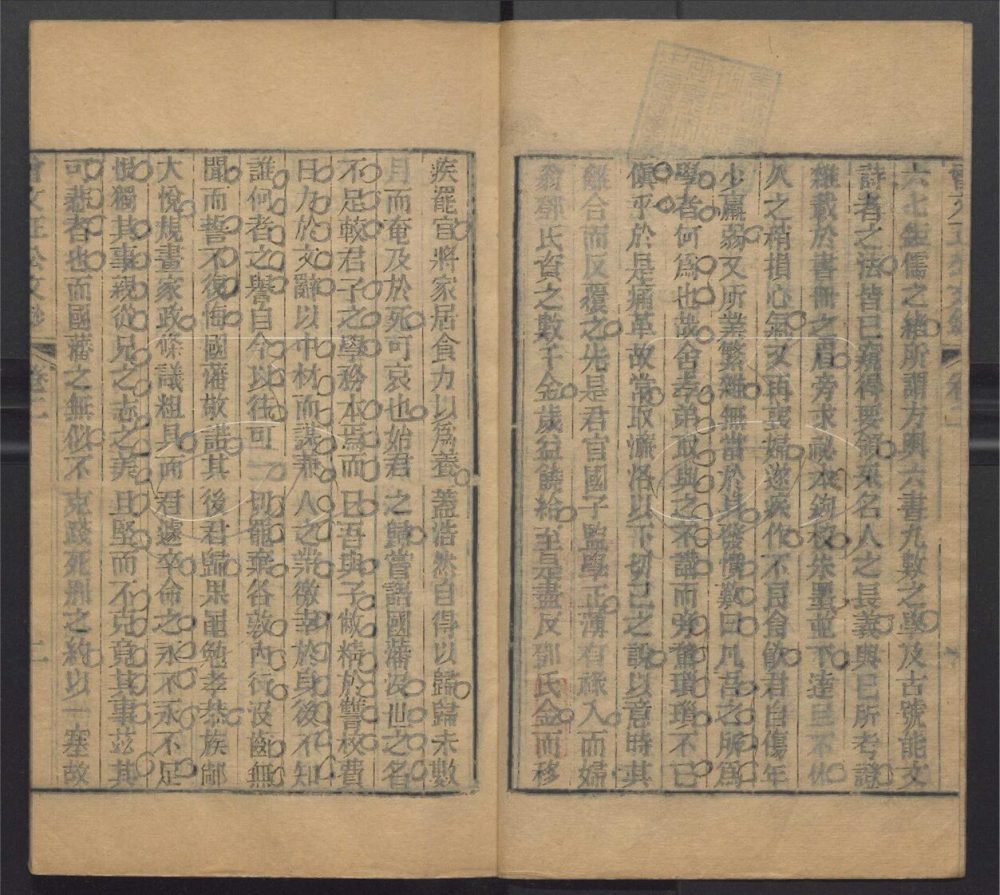 曾文正公文鈔 卷二
六七鉅儒之緒所謂方輿六書九數之學及古號能文
詩者之法皆已窺得要領采名人之長義與己所考證
雜載於書冊之眉旁求祕本鉤校朱墨並下達旦不休
久之稍損心氣又再喪婦遂疾作不良食飲君自傷年
少羸弱又所業繁雜無當於身發憤歎曰凡吾之所爲
學者何爲也哉舍孝弟取與之不講而旁騖瑣瑣不已
傎乎於是痛革故常取濂洛以下切己之說以意時其
離合而反覆之先是君官國子監學正薄有祿入而婦
翁鄧氏資之數千金歲益饒給至是盡反鄧氏金而移
疾罷官將家居食力以爲養蓋浩然自得以歸歸未數
月而奄及於死可哀也始君之歸嘗語國藩沒世之名
不足較君子之學務本焉而已吾與子敝精於讐校費
日力於文辭以中材而謀兼人之業徼幸於身後不知
誰何者之譽自今以往可一切罷棄各敦內行沒齒無
聞而誓不復悔國藩敬諾其後君歸果黽勉孝恭族鄰
大悅規畫家政條議粗具而君遽卒命之永不永不足
恨獨其事親從兄之志之美且堅而不克竟其事茲其
可悲者也而國藩之無似不克踐死別之約以一塞故
曾文正公文鈔 卷二 二